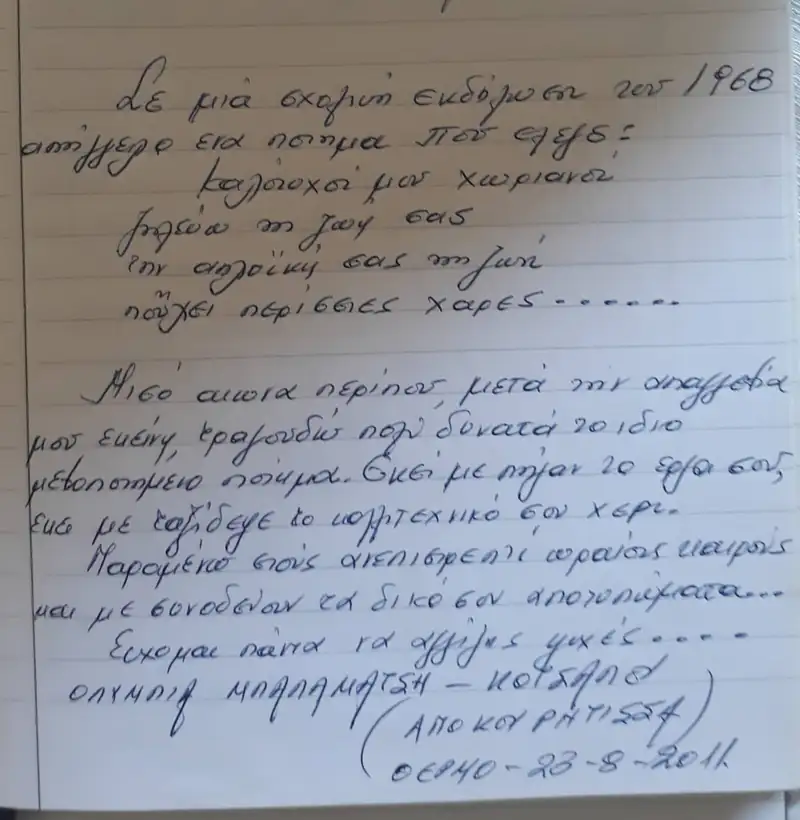 Σε μιά σχολική εκδήλωση του 1968
απήγγειλα ένα ποίημα που έλεγε:
Καλότυχοί μου χωριανοί
ζηλεύω τη ζωή σας
την απλοϊκή σας τη ζωή
πὄχει περίσσιες χαρές.......
Μισό αιώνα περίπου, μετά την απαγγελία
μου εκείνη, τραγουδώ πολύ δυνατά το ίδιο
μελοποιημένο ποίημα. Εκεί με πήγαν τα έργα σου,
εκεί με ταξίδεψε το καλλιτεχνικό σου χέρι.
Παραμένω στούς ανεπιστρεπτί ωραίους καιρούς
και με συνοδεύουν τα δικά σου αποτυπώματα...
Εύχομαι πάντα να αγγίζεις ψυχές....
ΟΛΥΜΠΙΑ ΜΠΑΛΑΜΑΤΣΗ -
(ΑΠΟΚΟΥΡΗΤΙΣΣΑ)
ΘΕΡΜΟ - 23-8-2011